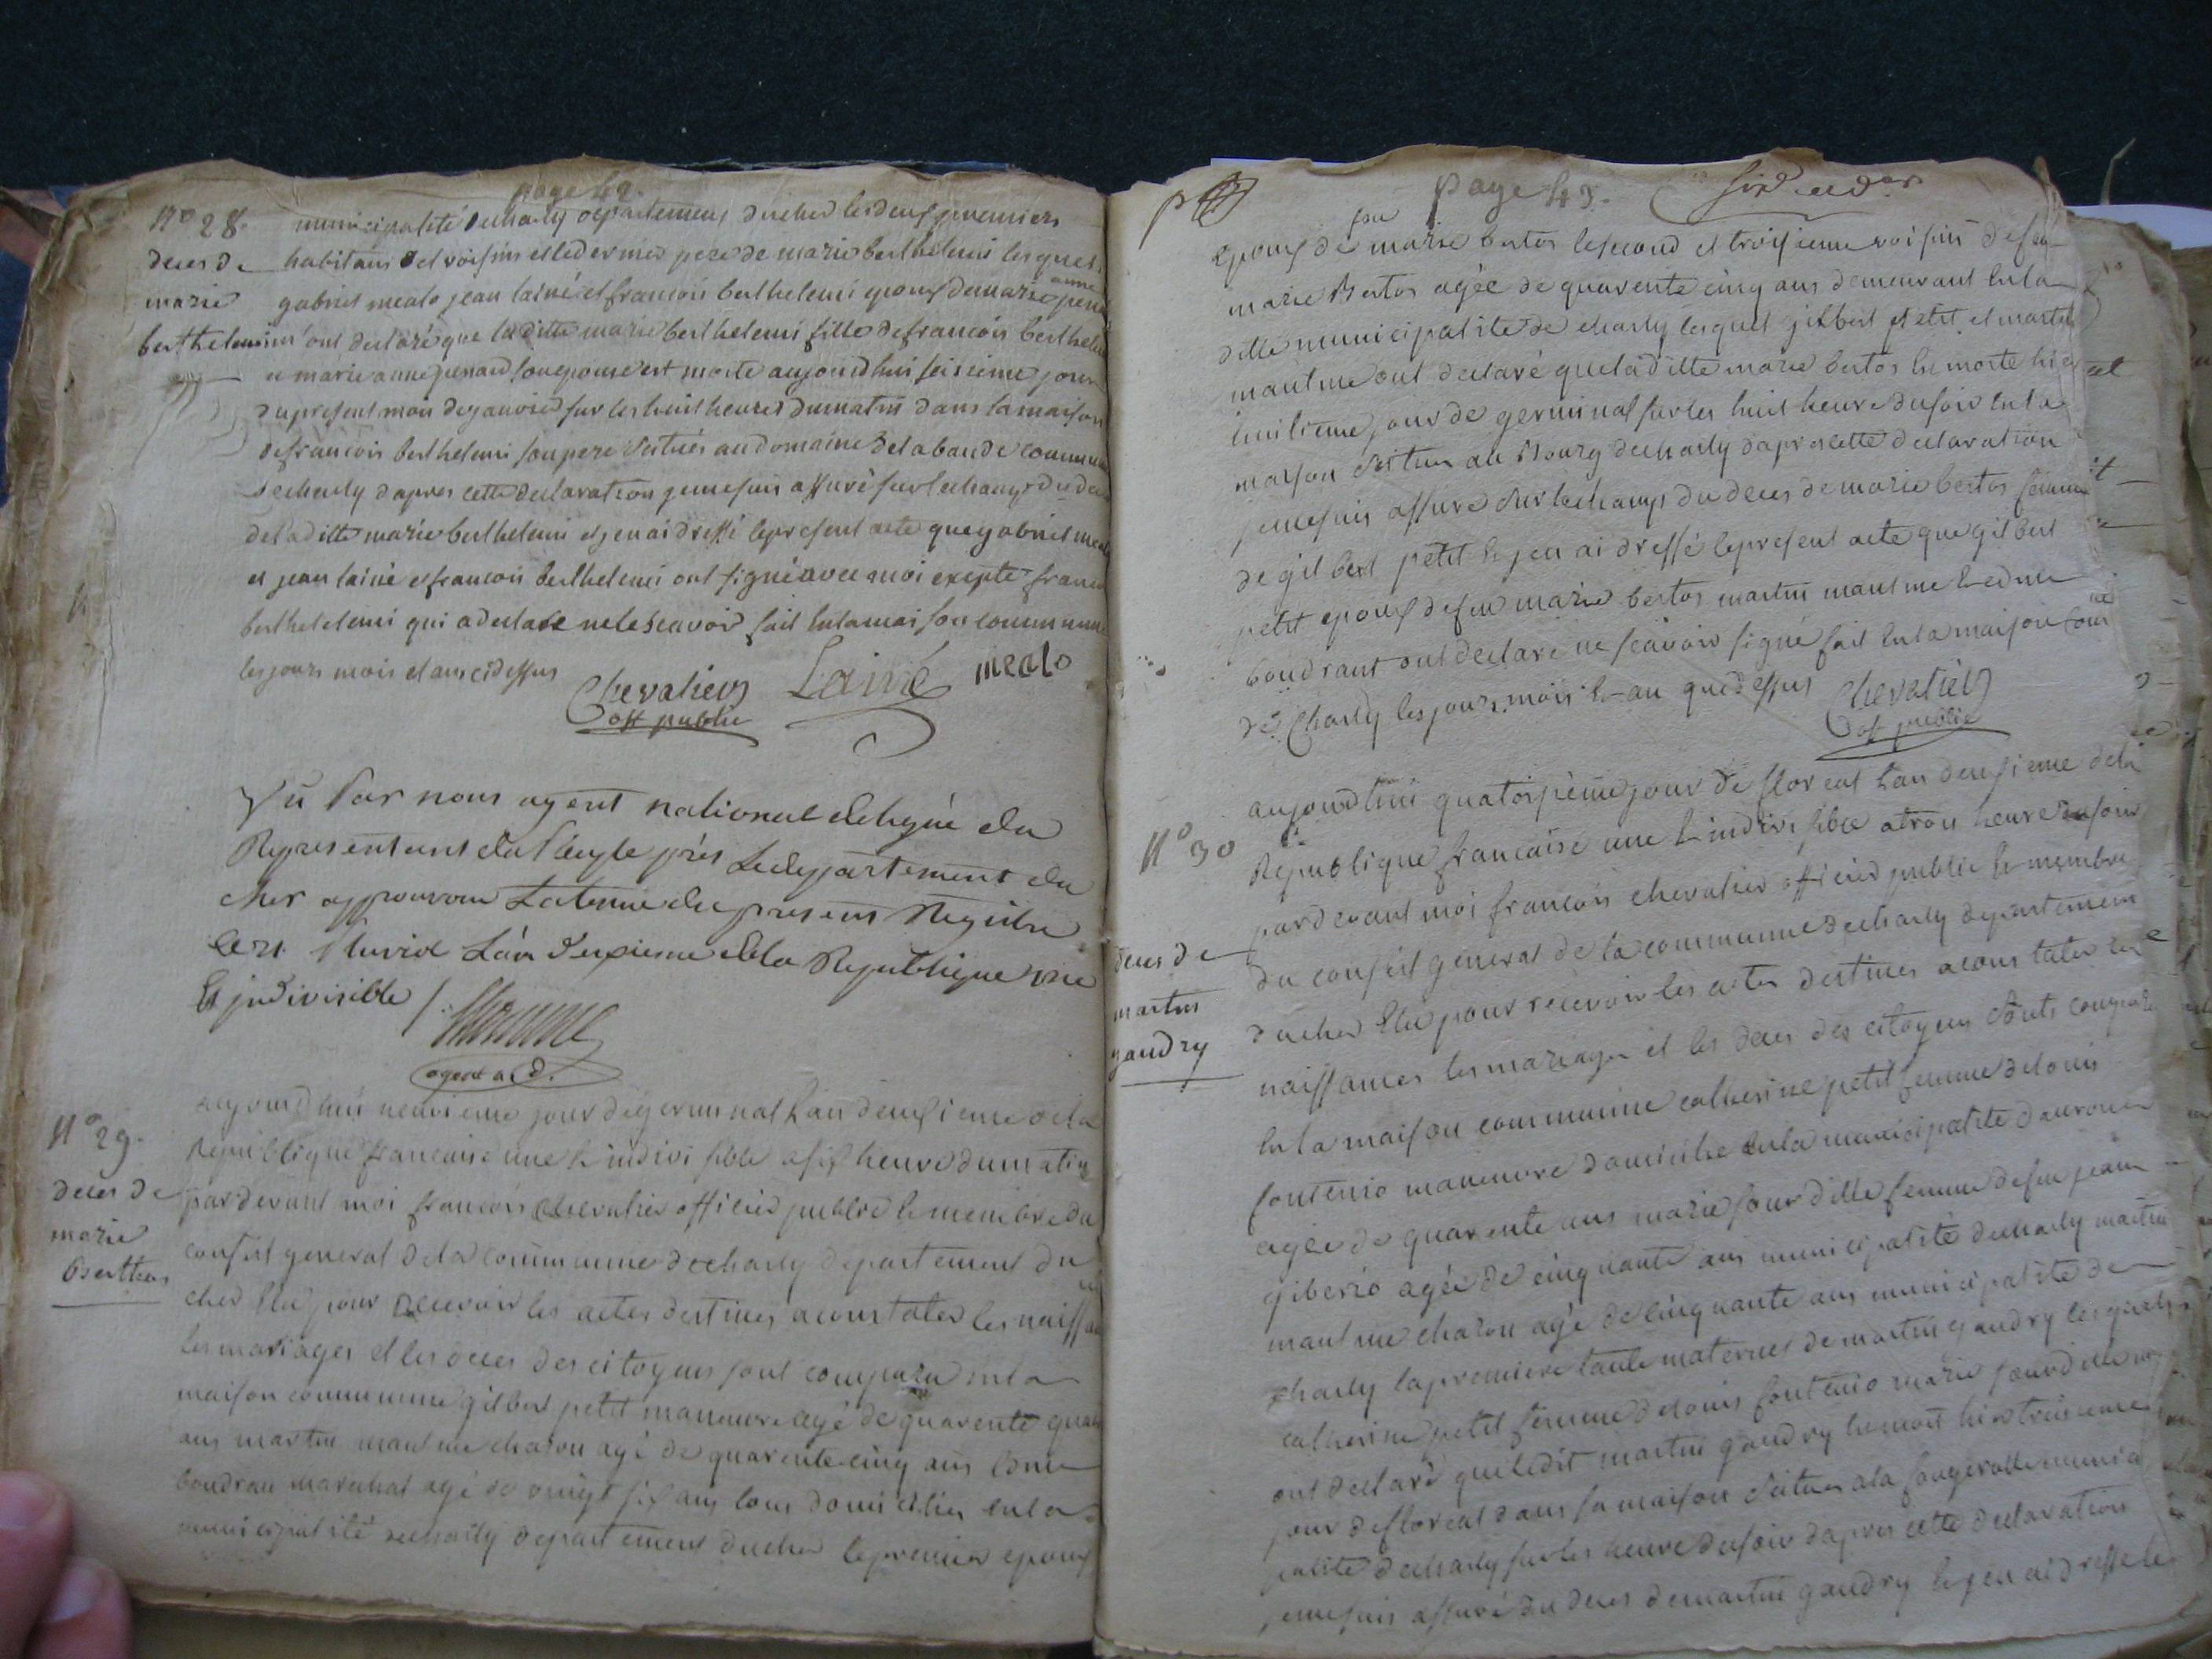 page 42.
N° 28.
deces de
marie
berthelemi
municipalité decharly departement ducher lesdeux premiers
habitans et voisins et ledernier pere de marie berthelemi lesquels
gabriel mealo jean lainé et francois berthelemi epoux demarie anne penard
m'ont declaré que laditte marie berthelemi fille defrancois berthelemi
et marie anne penard son epouse est morte aujourdhui seisieme jour
dupresent mois dejanvier sur les huit heures dumatin dans lamaison
defrancois berthelemi sonpere scitués audomaine delabaude commune
decharly dapres cette declaration jemesuis assuré surlechamp du deces
deladitte marie berthelemi et jenai dressé lepresent acte quegabriel mealo
et jean lainé et francois berthelemi ont signé avec moi excepte francois
berthelemi qui a declare nelescavoir fait enlamaison commune
lesjours mois et an cidessus
Chevalier Lainé mealo
off public
Vu Par nous agent national delegué du
Representant du Peuple près Ledepartement du
cher approuvons Latenue du present Registre
Ce 21. pluviôse L'an Deuxieme dela Republique une
Et jndivisible /.
agent a. d.
N° 29.
deces de
marie
Berthos
aujourdhui neuvieme jour degerminal Lan deuxieme dela
Republique francaise une et indivisible asix heure dumatin
pardevant moi francois chevalier officier public et membre du
conseil general dela commune decharly departement du
cher elu pour recevoir les actes destines aconstater les naissances
lesmariages et les deces des citoyens sont comparu enla
maison commune gilbert petit maneuvre agé de quarente quatre
ans martin mautme charon agé de quarente cinq ans
boudran marechal agé de vingt six ans tous domicilies enla
municipalité decharly departement ducher lepremier epoux
page 43.
epoux de feu marie bertos lesecond et troisieme voisins defeu
marie Bertos agée de quarente cinq ans demeurant enla
ditte municipalite de charly lesquel gilbert petit et martin
mautme ont declaré queladitte marie bertos est morte hier
huitieme jour de germinal sur les huit heure dusoir enla
maison scitues au Bourg decharly dapres cette declaration
jemesuis assure sur lechamps du deces de marie bertos femme
de gilbert petit et jen ai dressé lepresent acte que gilbert
petit epoux defeu marie bertos martin mautme
boudrant ont declaré ne scavoir signé fait enla maison commune
de charly lesjours, mois et an quedessus
Chevalier
off public
N° 30
deces de
martin
gaudry
aujourdhui quatorzieme jour de floreal Lan deuxieme dela
Republique francaise une et indivisible atrois heure dusoir
pardevant moi francois chevalier officier public et membre
du conseil general de la commune decharly departement
ducher elu pour recevoir les actes destines aconstater les
naissances les mariages et les deces des citoyens sont comparu
enla maison commune catherine petit femme delouis
fontenio maneuvre domicilie enla municipalite
agée de quarente ans marie jourdille femme defeu jean
giberio agée de cinquante ans municipalité decharly martin
mautme charon agé decinquante ans municipalite de
charly lapremiere tante maternel de martin gaudry lesquels
catherine petit femme delouis fontenio marie jourdille
ont declaré queledit martin gaudry est mort hier treisieme
jour defloreal dans sa maison scitues ala fougerolle munici
palité decharly sur les heure dusoir dapres cette declaration
jemesuis assuré du deces demartin gaudry et jen ai dressé le